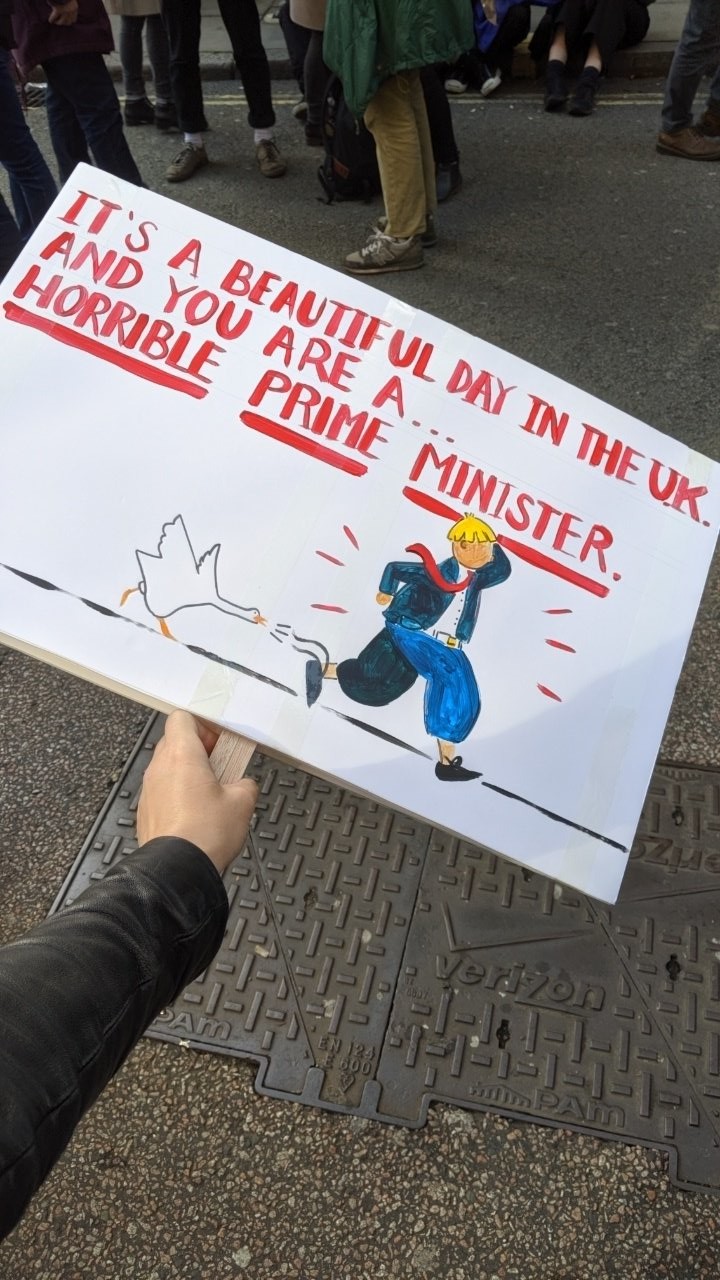 IT'S A BEAUTIFUL DAY IN THE U.K.
AND YOU ARE A...
HORRIBLE PRIME MINISTER.
verizon
verizon
PAm
EN 124
PAm